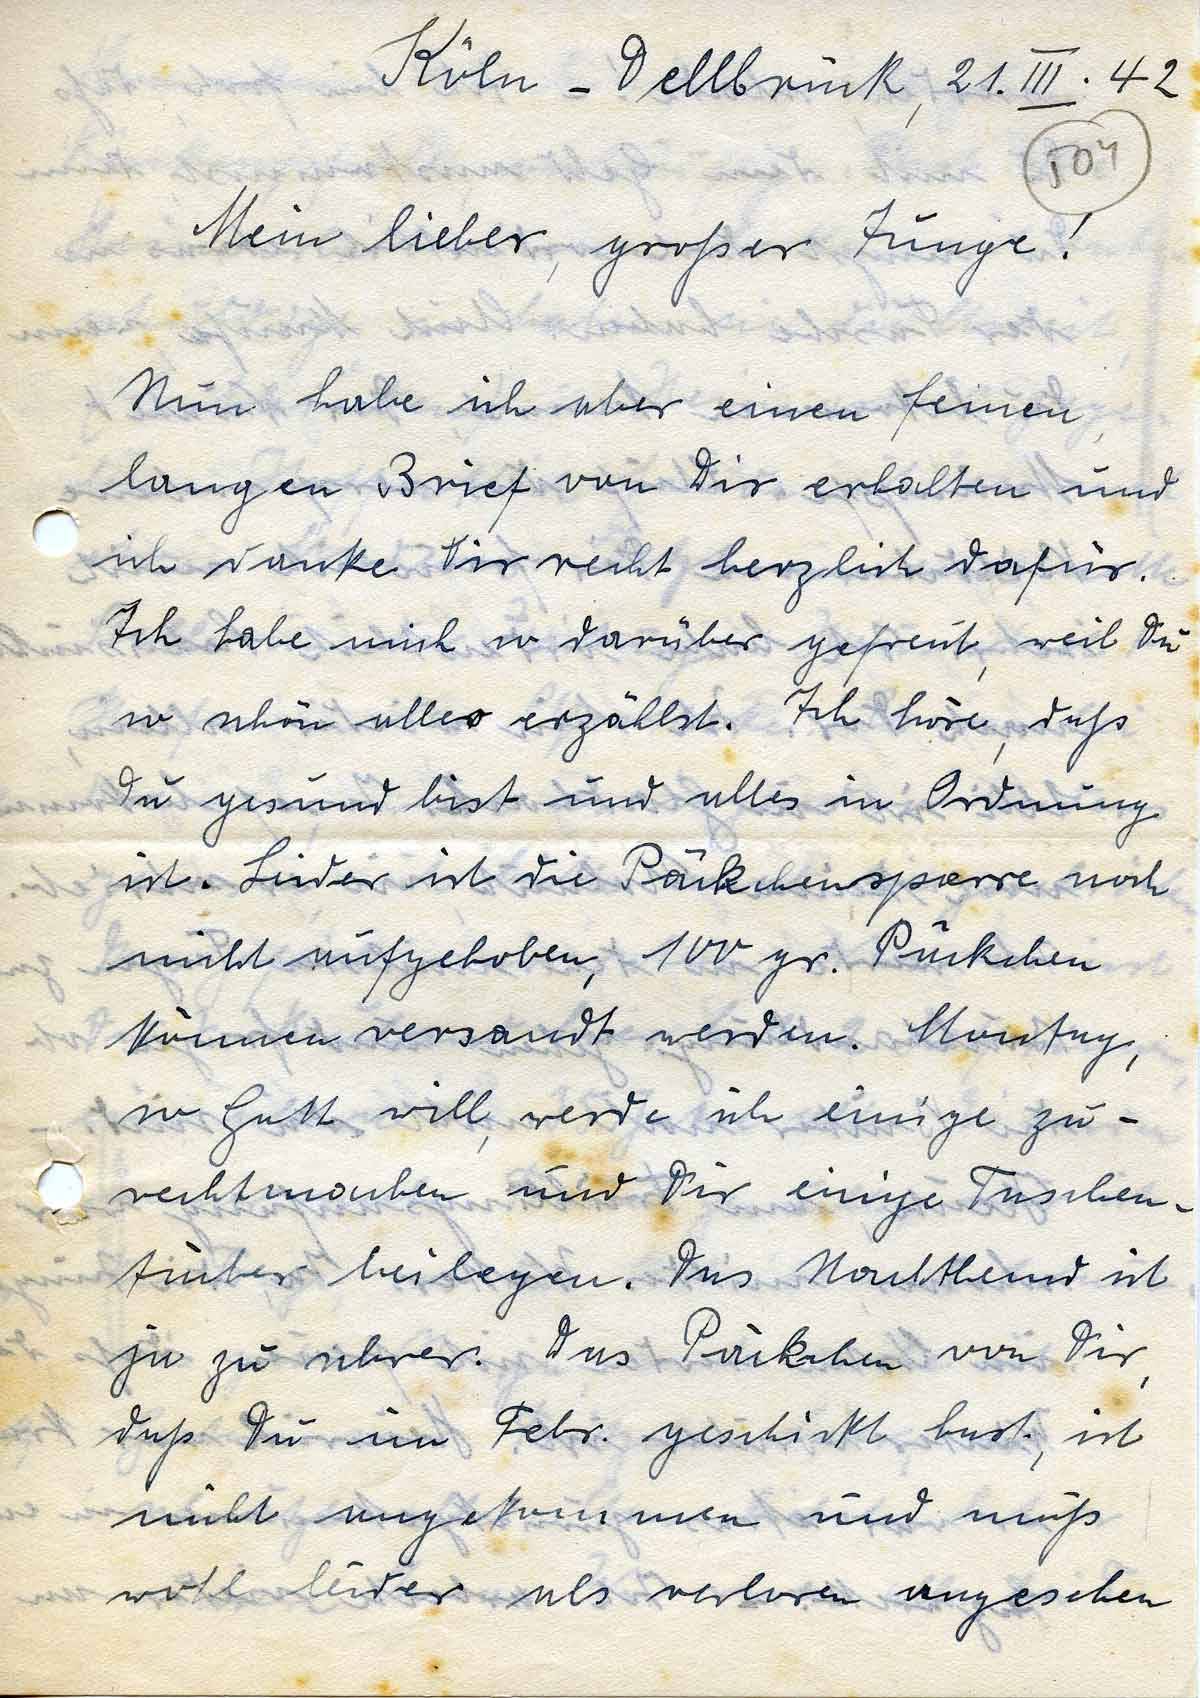 Köln - Dellbrück, 21. III. 42
504
Mein lieber, großer Junge!
Nun habe ich aber einen feinen,
langen Brief von Dir erhalten und
ich danke Dir recht herzlich dafür.
Ich habe mich so darüber gefreut, weil Du
so schön alles erzählst. Ich höre, daß
Du gesund bist und alles in Ordnung
ist. Leider ist die Päckchensperre noch
nicht aufgehoben, 100 gr. Päckchen
können versandt werden. Montag,
so Gott will, werde ich einige zu-
rechtmachen und Dir einige Taschen-
tücher beilegen. Das Nachthemd ist
ja zu schwer. Das Päckchen von Dir,
daß Du im Febr. geschickt hast, ist
nicht angekommen und muß
wohl leider als verloren angesehen